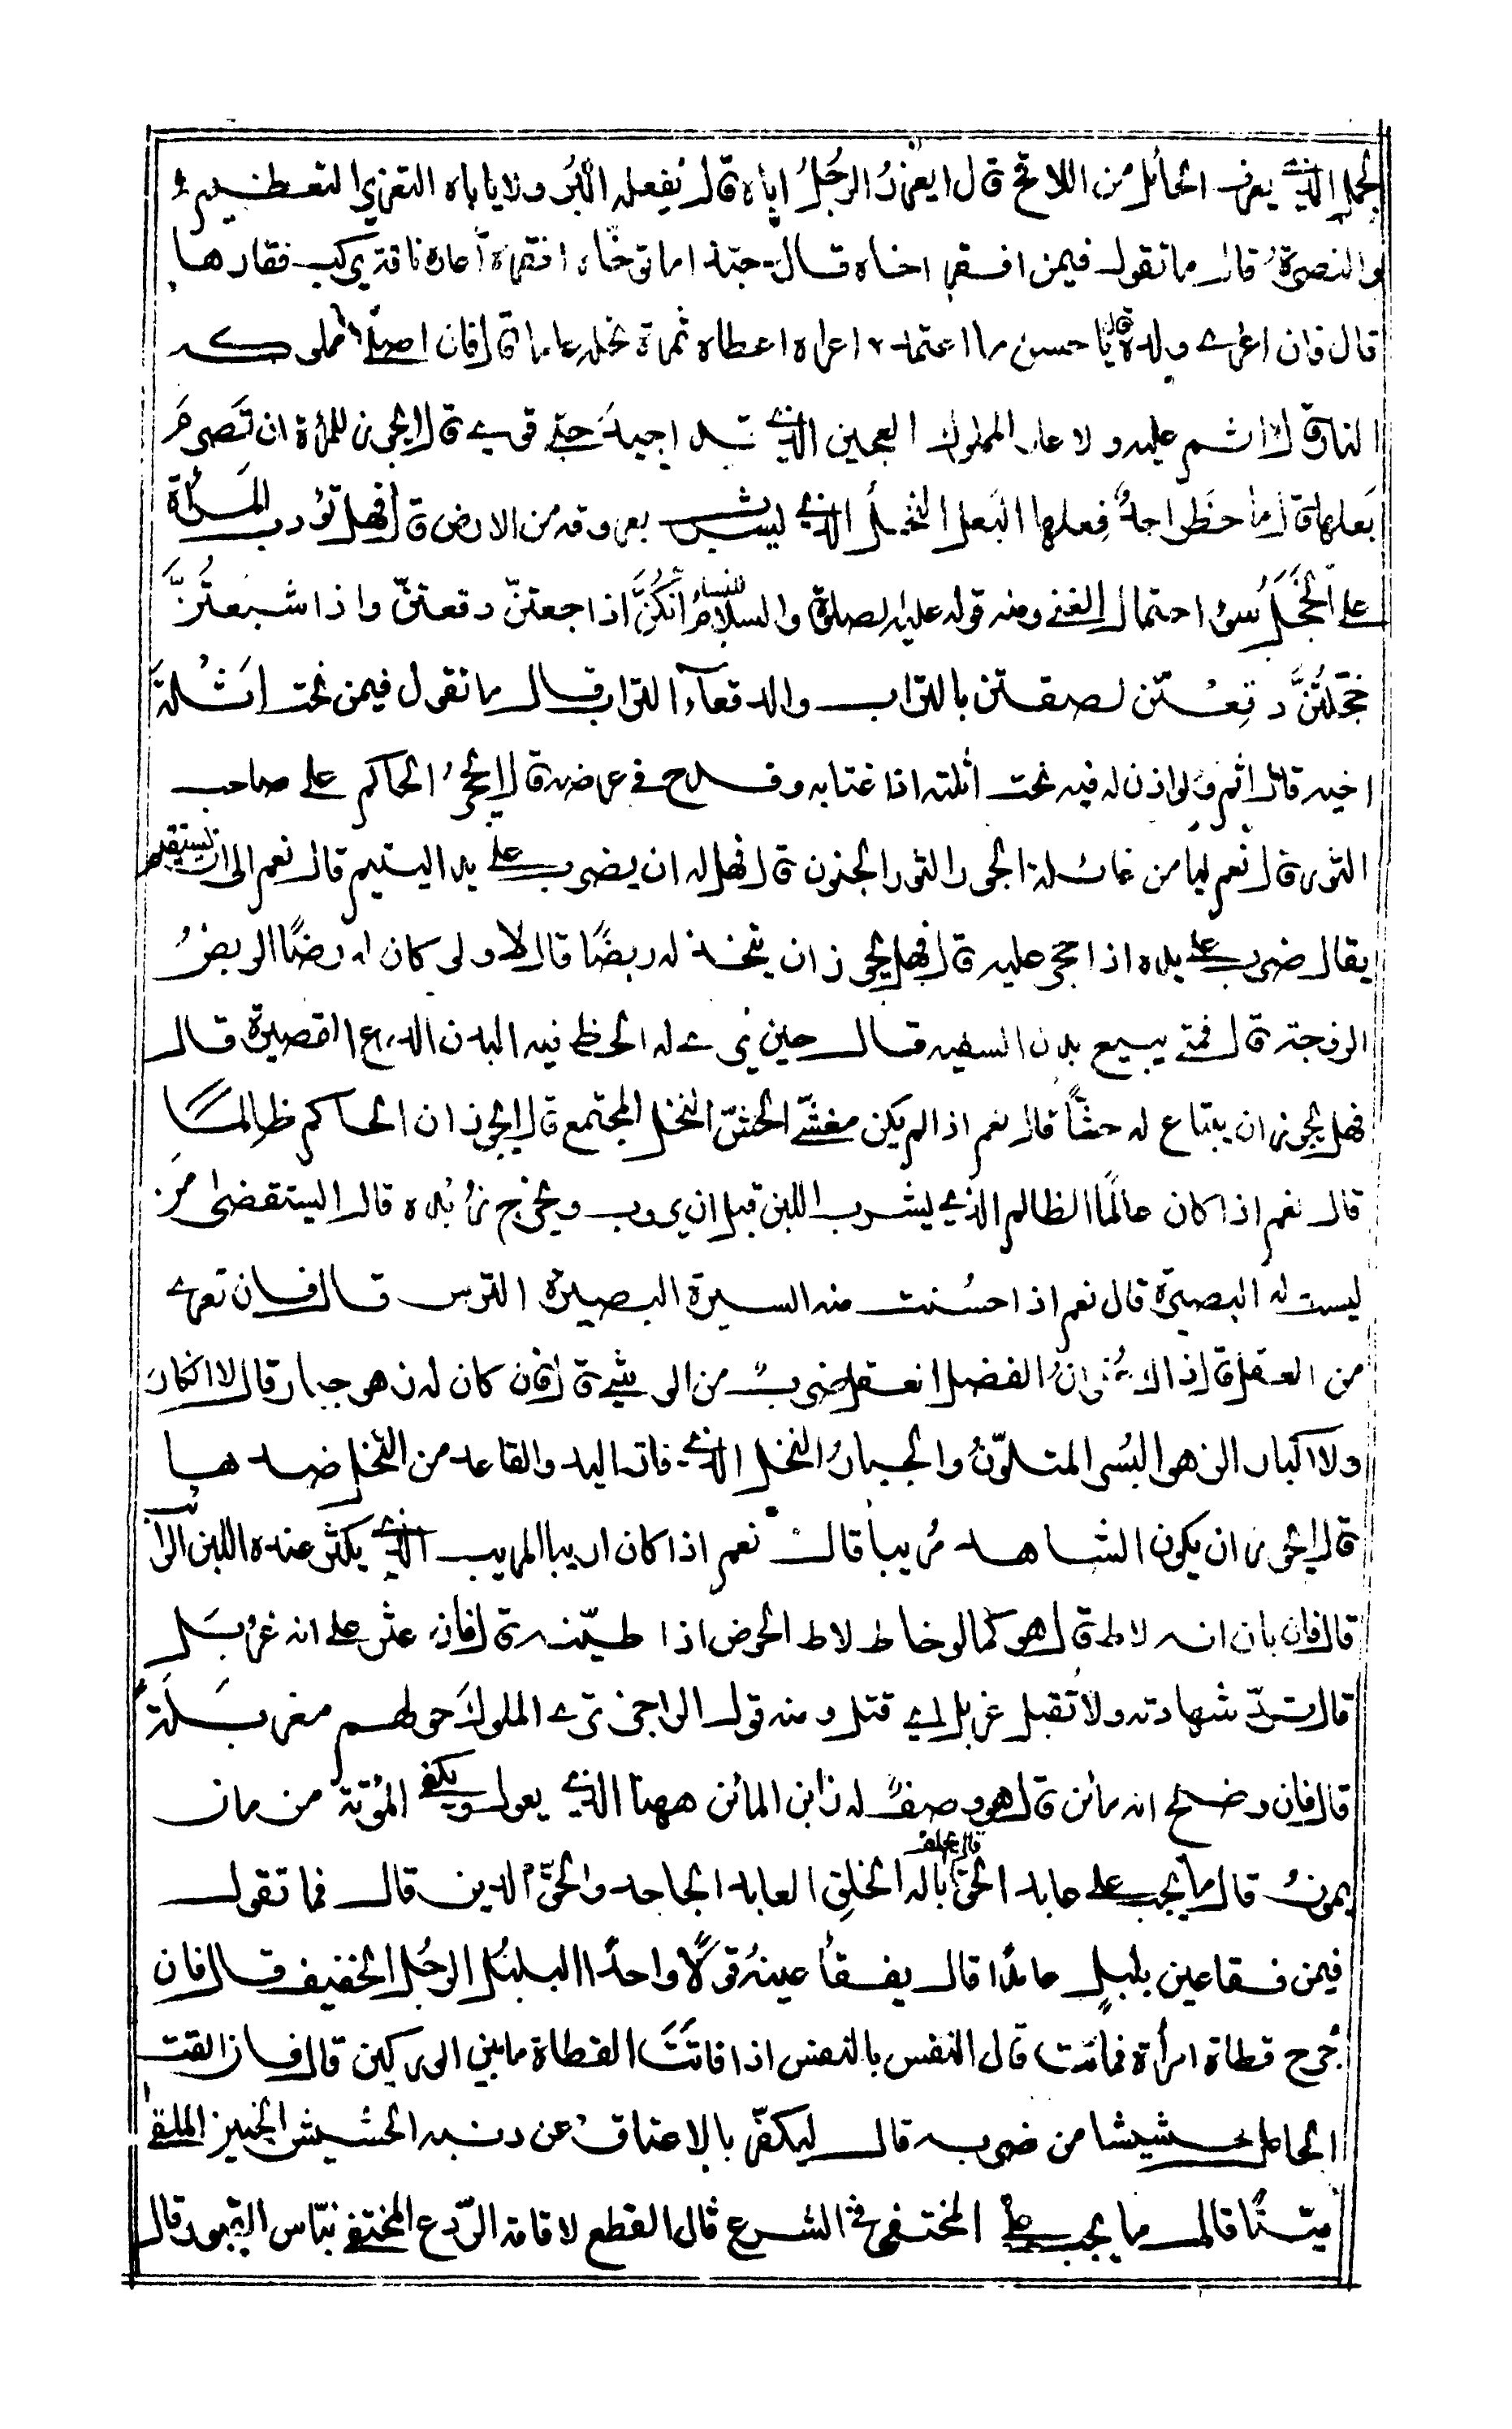 الجمل الذي يعرف الحائل من اللاقح قال ايعزر الرجل اباه قال يفعله البر ولا ياباه التعزير التعظيم
والنصرة قال ما تقول فيمن افقر اخاه قال حبذا ما توخاه افقره اعاره ناقة يركب فقارها
قال فان اعرى ولده قال يا حسن ما اعتمد اعراه اعطاه ثمرة نخله عاما قال فان اصلى مملوكه
النار قال لا اثم عليه ولا عار المملوك العجين الذي قد اجيد حتى قوي قال ايجوز للمرأة ان تصوم
بعلها قال ما حظر احد فعلها البعل النخل الذي يشرب بعروقه من الارض قال فهل تؤدب المرأة
على الخجل سوء احتمال الغنى ومنه قوله عليه الصلوة والسلام للنساء انكن اذا جعتن دقعتن واذا شبعتن
خجلتن دقعتن لصقتن بالتراب والدقعاء التراب قال ما تقول فيمن نحت اثلة
اخيه قال اثم ولو اذن له فيه نحت اثلته اذا اغتابه وقدح في عرضه قال ايحجر الحاكم على صاحب
الثور قال نعم ليامن غائلة الجور الثور الجنون قال فهل له ان يضرب على يد اليتيم قال نعم الى ان يستقيم
يقال ضرب على يده اذا حجر عليه قال فهل يجوز ان يتخذ له ربضا قال لا ولو كان له رضا الربض
الزوجة قال فمتى يبيع بدن السفيه قال حين يرى له الحظ فيه البدن الدرع القصيرة قال
فهل يجوز ان يبتاع له حشا قال نعم اذا لم يكن مغشى الحش النخل المجتمع قال ايجوز ان الحاكم ظالما
قال نعم اذا كان عالما الظالم الذي يشرب اللبن قبل ان يروب ويخرج زبده قال ايستقضى من
ليست له البصيرة قال نعم اذا حسنت منه السيرة البصيرة الترس قال فان تعرى
من العقل قال ذاك عنوان الفضل العقل ضرب من الوشي قال فان كان له زهو جبار قال لا انكار
ولا اكبار الزهو البسر المتلون والجبار النخل الذي فات اليد والقاعد من النخل ضدها
قال ايجوز ان يكون الشاهد مريبا قال نعم اذا كان اريبا المريب الذي يكثر عنده اللبن الرائب
قال فان بان انه لاط قال هو كما لو خاط لاط الحوض اذا طينه قال فان عثر على انه غربل
قال ترد شهادته ولا تقبل غربل اي قتل ومنه قول الراجز ترى الملوك حولهم مغربلة
قال فان وضح انه مائن قال هو وصف له زائن المائن ههنا الذي يعول ويكفي المؤنة من مان
يمون قال ما يجب على عابد الحق قال يحلف باله الخلق العابد الجاحد والحق الدين قال فما تقول
فيمن فقأ عين بلبل عامدا قال يفقأ عينه قولا واحدا البلبل الرجل الخفيف قال فان
جرح قطاة امرأة فماتت قال النفس بالنفس اذا فاتت القطاة ما بين الوركين قال فان القت
الحامل حشيشا من ضربه قال ليكفر بالاعتاق عن ذنبه الحشيش الجنين الملقى
ميتا قال ما يجب على المختفي في الشرع قال القطع لاقامة الردع المختفي نباش القبور قال